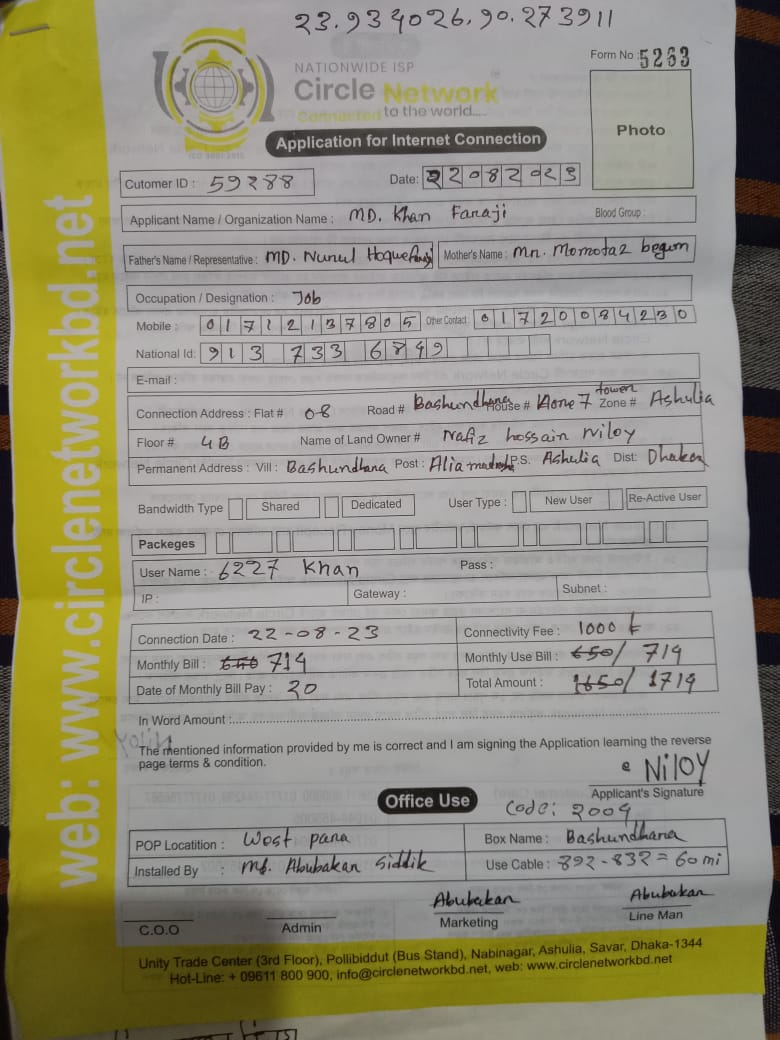 23.934026,90.273911
NATIONWIDE ISP
Circle Network
Connected to the world....
ISO 9001:2015
Form No :5263
Photo
Application for Internet Connection
Cutomer ID : 59288
Date: 22082023
Applicant Name / Organization Name : MD. Khan Faraji
Blood Group :
Father's Name / Representative : MD. Nurul Hoque
Mother's Name : Mn. Momotaz begum
Occupation / Designation : Job
Mobile : 01712137805 Other Contact : 01720084230
National Id: 913 733 6849
E-mail :
Connection Address : Flat # 08 Road # Bashundhara House # Zone 7 tower Zone # Ashulia
Floor # 4B Name of Land Owner # Nafiz hossain Niloy
Permanent Address : Vill : Bashundhara Post : P.S. Ashulia Dist: Dhaka
Bandwidth Type Shared Dedicated User Type : New User Re-Active User
Packeges
User Name : 6227 Khan Pass :
IP : Gateway : Subnet :
Connection Date : 22-08-23 Connectivity Fee : 1000 t
Monthly Bill : 714 Monthly Use Bill : 650/ 714
Date of Monthly Bill Pay : 20 Total Amount : 1650/ 1714
In Word Amount :
The mentioned information provided by me is correct and I am signing the Application learning the reverse
page terms & condition.
NiLOY
Applicant's Signature
Office Use
Code: 2009
POP Locatition : West para Box Name : Bashundhara
Installed By : Md. Abubakar Siddik Use Cable : 892-832=60mi
Abubakar Abubakar
C.O.O Admin Marketing Line Man
Unity Trade Center (3rd Floor), Pollibiddut (Bus Stand), Nabinagar, Ashulia, Savar, Dhaka-1344
Hot-Line: + 09611 800 900, info@circlenetworkbd.net, web: www.circlenetworkbd.net
web: www.circlenetworkbd.net